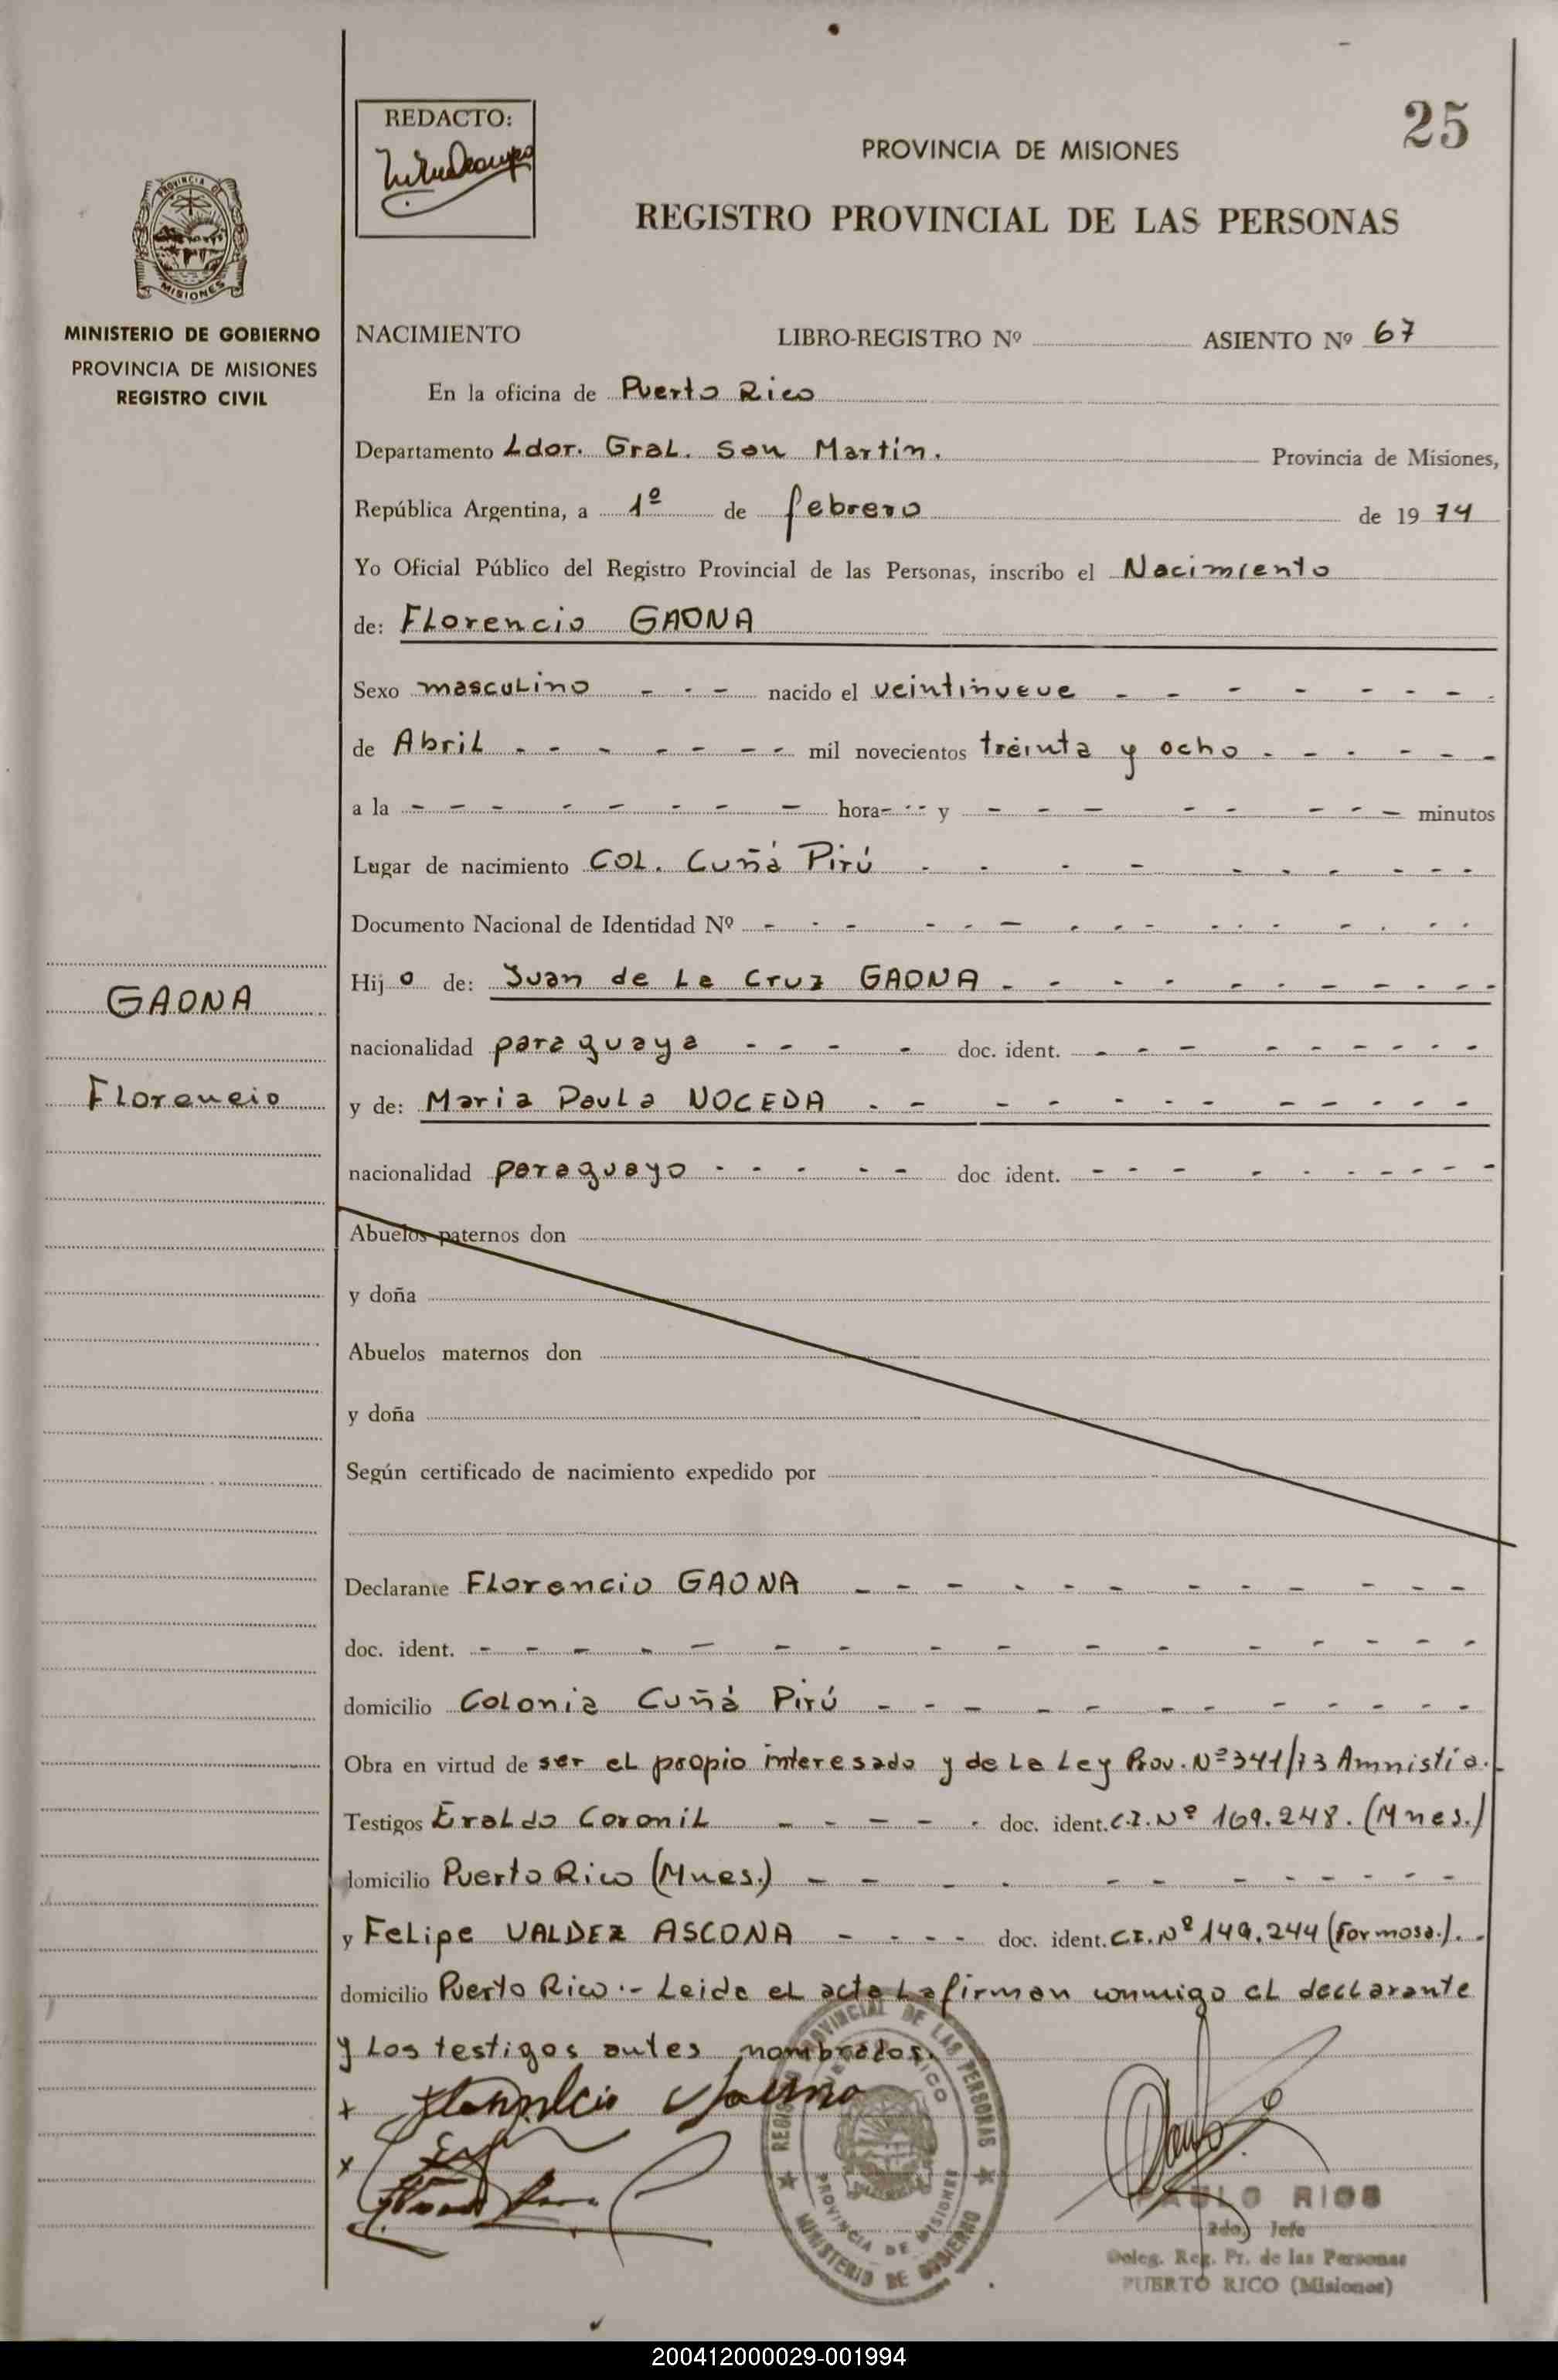 25
REDACTO:
PROVINCIA DE MISIONES
REGISTRO PROVINCIAL DE LAS PERSONAS
PROVINCIA DE
MISIONES
MINISTERIO DE GOBIERNO
PROVINCIA DE MISIONES
REGISTRO CIVIL
NACIMIENTO LIBRO-REGISTRO Nº ASIENTO Nº 67
En la oficina de Puerto Rico
Departamento Ldor. Gral. San Martín. Provincia de Misiones,
República Argentina, a 1º de febrero de 1974
Yo Oficial Público del Registro Provincial de las Personas, inscribo el Nacimiento
de: Florencio GAONA
Sexo masculino - - - nacido el veintinueve - - - - - - - -
de Abril - - - - - - - mil novecientos treinta y ocho - - - - - -
a la - - - - - - - - hora - - - y - - - - - - - - minutos
Lugar de nacimiento COL. Cuñá Pirú - - - - - - - - - -
Documento Nacional de Identidad Nº - - - - - - - - - - - - - - -
Hijo de: Juan de La Cruz GAONA - - - - - - - - - - -
nacionalidad paraguaya - - - - - doc. ident. - - - - - - - - - -
y de: Maria Paula NOCEDA - - - - - - - - - - - -
nacionalidad paraguayo - - - - - - doc ident. - - - - - - - - - -
Abuelos paternos don
y doña
Abuelos maternos don
y doña
Según certificado de nacimiento expedido por
GAONA
Florencio
Declarante Florencio GAONA - - - - - - - - - - - -
doc. ident. - - - - - - - - - - - - - - - -
domicilio Colonia Cuñá Pirú - - - - - - - - - - - -
Obra en virtud de ser el propio interesado y de La Ley Prov. Nº 341/73 Amnistía.
Testigos Eraldo Coronil - - - - - doc. ident. C.I. Nº 169.248. (Mnes.)
domicilio Puerto Rico (Mnes.) - - - - - - - - - - -
y Felipe VALDEZ ASCONA - - - - doc. ident. C.I. Nº 149.244 (Formosa.). -
domicilio Puerto Rico .- Leida el acta La firman conmigo el declarante
y Los testigos antes nombrados.
REGISTRO PROVINCIAL DE LAS PERSONAS
PROVINCIA DE MISIONES
MINISTERIO DE GOBIERNO
PAULO RIOS
2do. Jefe
Deleg. Reg. Pr. de las Personas
PUERTO RICO (Misiones)
200412000029-001994